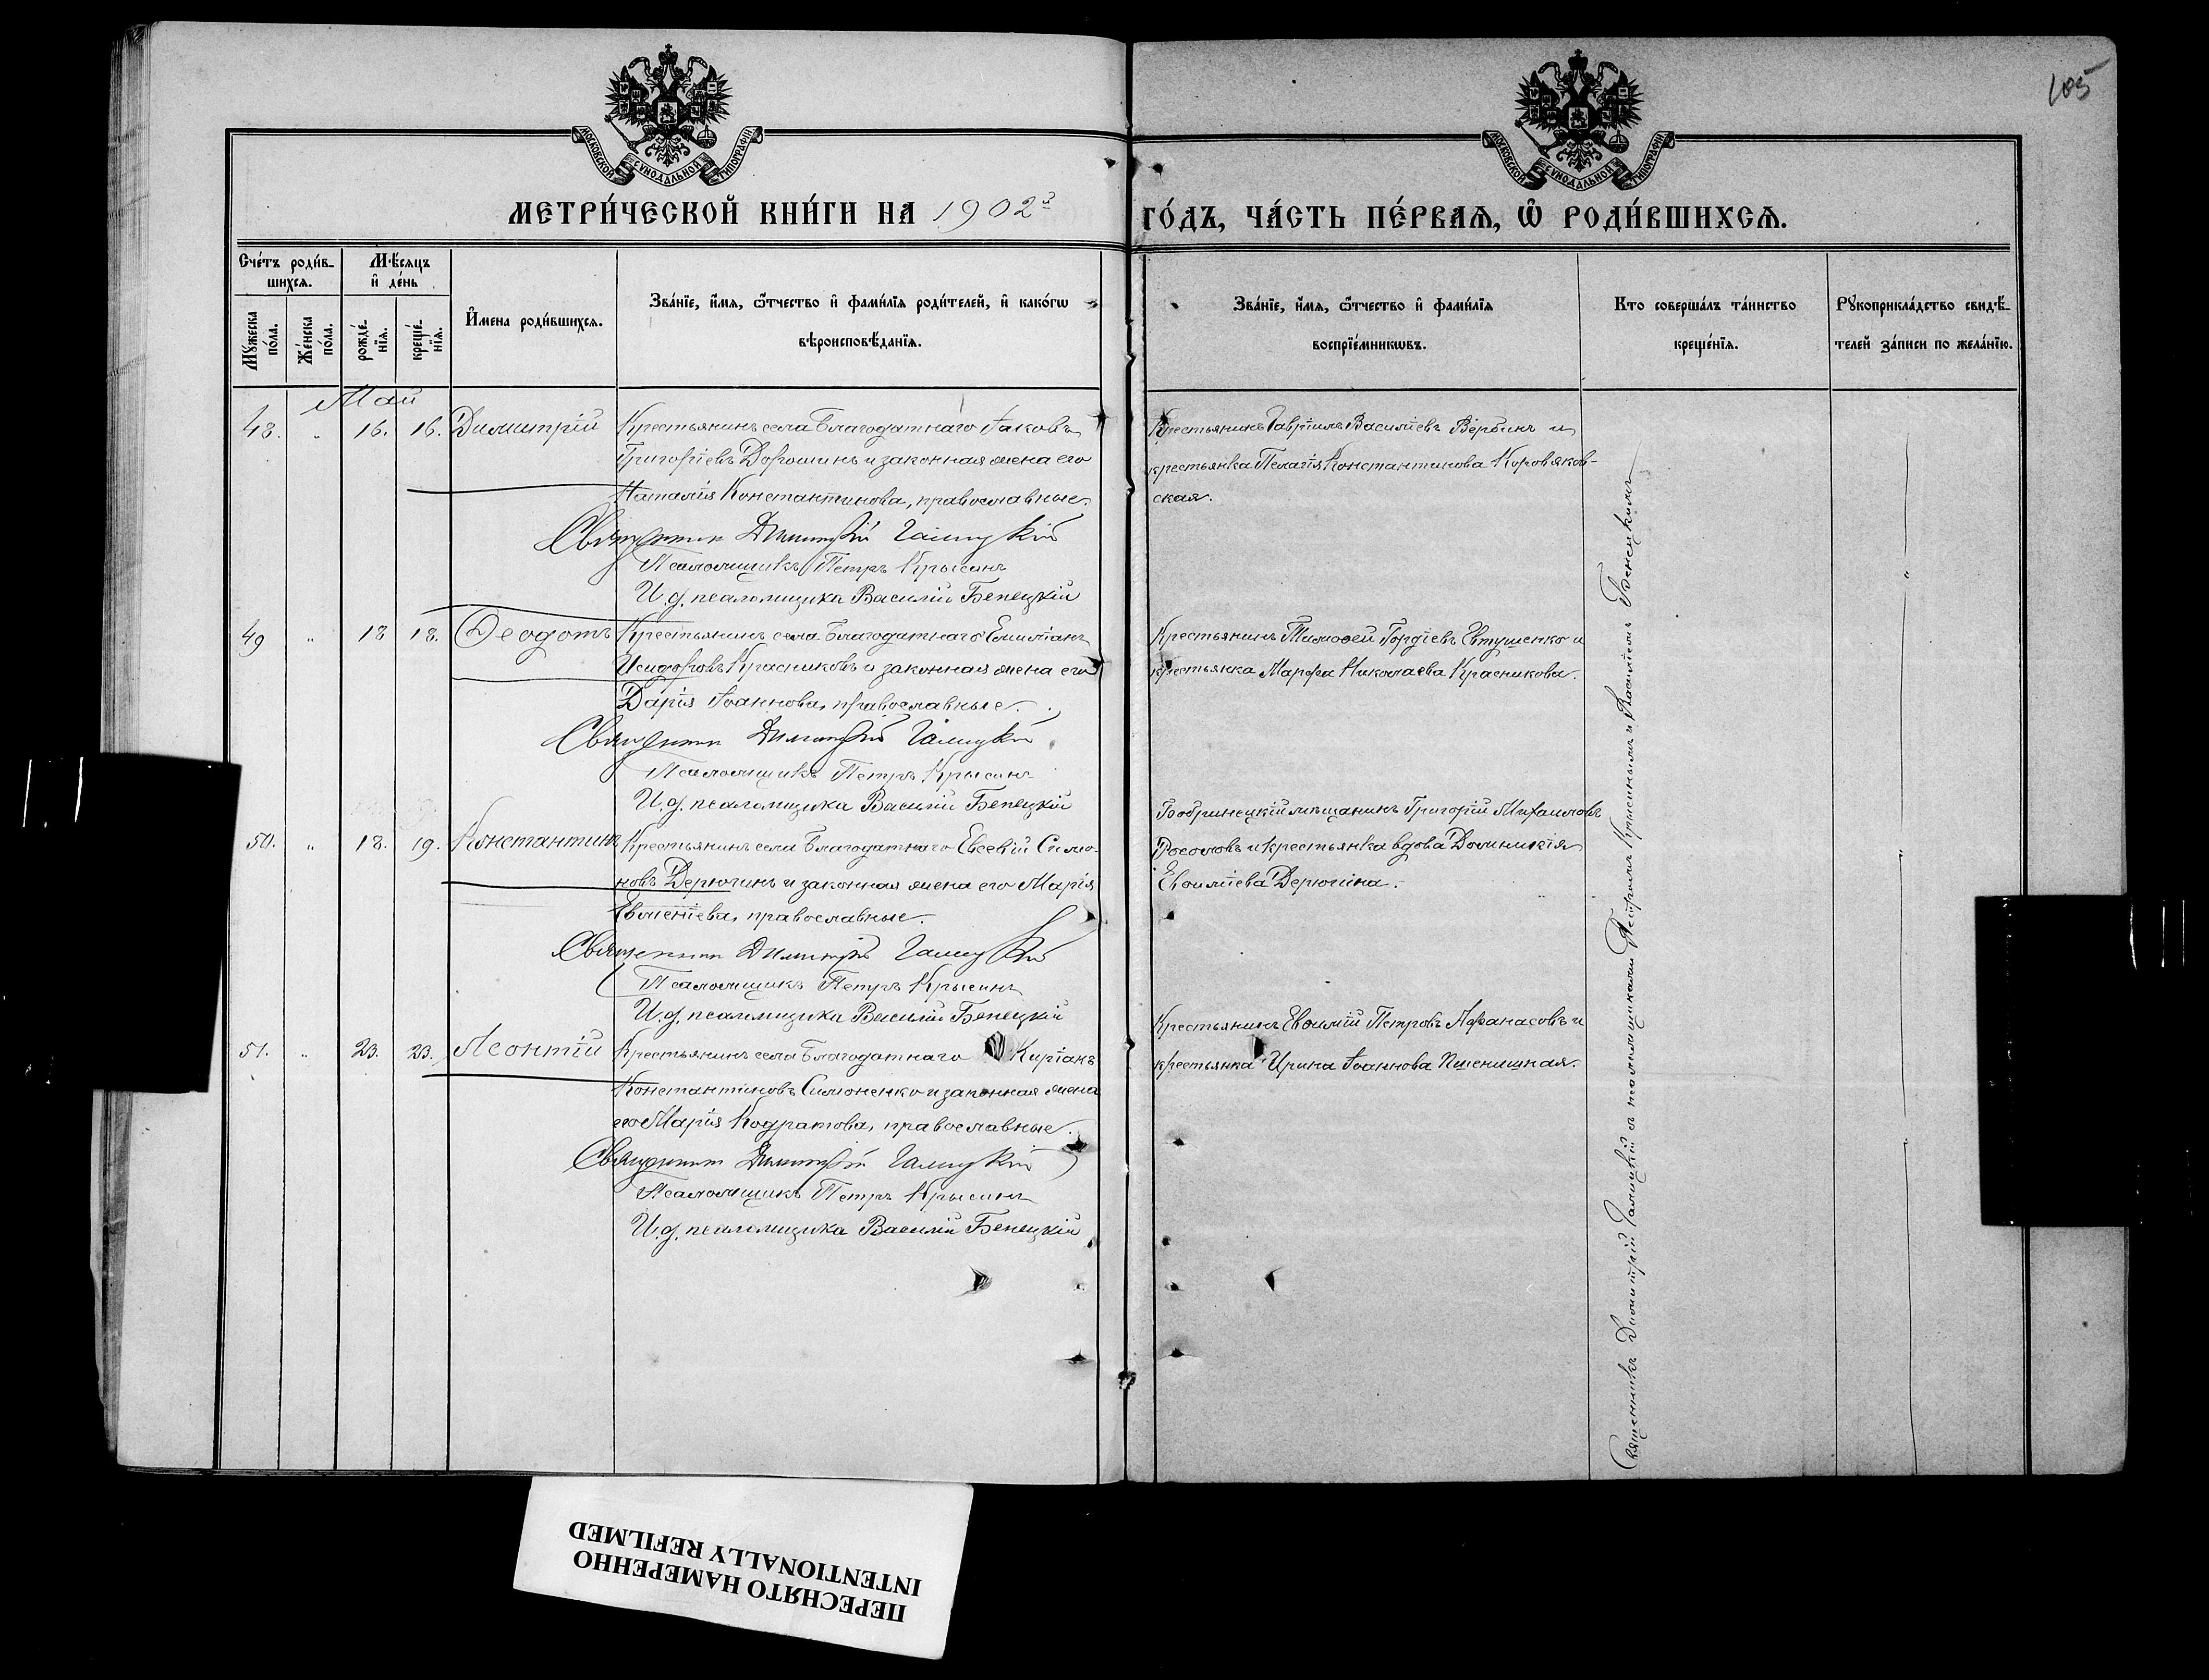 105
МОСКОВСКОЙ СѴНОДАЛЬНОЙ ТИПОГРАФІИ
МОСКОВСКОЙ СѴНОДАЛЬНОЙ ТИПОГРАФІИ
МЕТРИ́ЧЕСКОЙ КНИ́ГИ НА 1902й
ГО́ДЪ, ЧА́СТЬ ПЕ́РВАѦ, Ѽ РОДИ́ВШИХСѦ.
Сче́тъ роди́в-
шихсѧ.
Мѣ́сѧцъ
и҆ де́нь
Мꙋ́жеска по́ла.
Же́нска по́ла.
рожде́-
нїѧ.
креще́-
нїѧ.
И҆мена роди́вшихсѧ.
Зва́нїе, и҆́мѧ, ѻ҆́тчество и҆ фами́лїѧ роди́телей, и҆ како́гѡ
вѣроисповѣ́данїѧ.
Зва́нїе, и҆́мѧ, ѻ҆́тчество и҆ фами́лїѧ
воспрїе́мникѡвъ.
Кто соверша́лъ та́инство
креще́нїѧ.
Рꙋкоприкла́дство свидѣ́-
телей за́писи по жела́нїю.
Май
48. " 16. 16. Димитрій Крестьянинъ села Благодатнаго Іаковъ
Григоріевъ Дорошинъ и законная жена его
Наталія Константинова, православные.
Священник Димитрій Галицкій
Псаломщикъ Петръ Крысинъ
И. д. псаломщика Василій Бенецкій
Крестьянинъ Гавріилъ Василіевъ Вербинъ и
крестьянка Пелагія Константинова Коровяков-
ская.
49 " 18 18. Ѳеодотъ Крестьянинъ села Благодатнаго Емиліанъ
Исидоровъ Красниковъ и законная жена его
Дарія Іоаннова, православные.
Священник Димитрій Галицкій
Псаломщикъ Петръ Крысинъ
И. д. псаломщика Василій Бенецкій
Крестьянинъ Тимоѳей Гордіевъ Евтушенко и
крестьянка Марѳа Николаева Красникова.
50. " 18. 19. Константинъ Крестьянинъ села Благодатнаго Евсевій Симо-
новъ Дерюгинъ и законная жена его Марія
православные.
Священник Димитрій Галицкій
Псаломщикъ Петръ Крысинъ
И. д. псаломщика Василій Бенецкій
Бобринецкій мѣщанинъ Григорій Михаиловъ
и крестьянка вдова Домникія
Евѳиміева Дерюгина.
51. " 23. 23. Леонтій Крестьянинъ села Благодатнаго Киріакъ
Константиновъ Симоненко и законная жена
его Марія Кодратова, православные.
Священник Димитрій Галицкій
Псаломщикъ Петръ Крысинъ
И. д. псаломщика Василій Бенецкій
Крестьянинъ Евѳимій Петровъ Аѳанасовъ и
крестьянка Ирина Іоаннова Пшенишная.
Священникъ Димитрій Галицкій съ псаломщиками Петромъ Крысинымъ и Василіемъ Бенецкимъ
ПЕРЕСНЯТО НАМЕРЕННО
INTENTIONALLY REFILMED